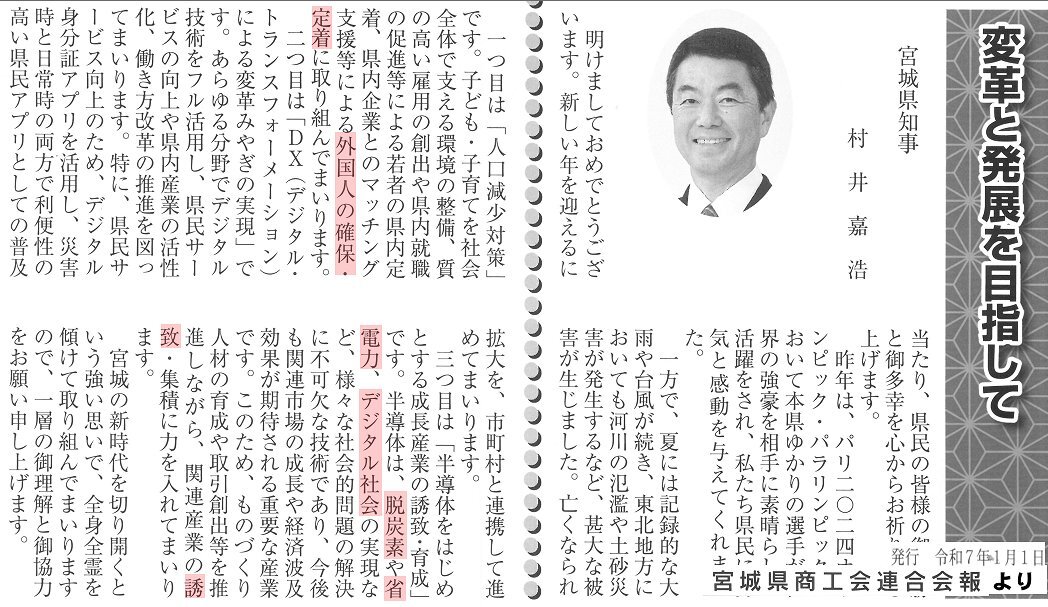 変革と発展を目指して
宮城県知事
村井嘉浩
明けましておめでとうござ
います。新しい年を迎えるに
当たり、県民の皆様の
と御多幸を心からお祈り
上げます。
昨年は、パリ二〇二四オ
ンピック・パラリンピック
おいて本県ゆかりの選手が
界の強豪を相手に素晴らし
活躍をされ、私たち県民に
気と感動を与えてくれま
た。
一方で、夏には記録的な大
雨や台風が続き、東北地方に
おいても河川の氾濫や土砂災
害が発生するなど、甚大な被
害が生じました。亡くなられ
一つ目は「人口減少対策」
です。子ども・子育てを社会
全体で支える環境の整備、質
の高い雇用の創出や県内就職
の促進等による若者の県内定
着、県内企業とのマッチング
支援等による外国人の確保・
定着に取り組んでまいります。
二つ目は「DX(デジタル・
トランスフォーメーション)
による変革みやぎの実現」で
す。あらゆる分野でデジタル
技術をフル活用し、県民サー
ビスの向上や県内産業の活性
化、働き方改革の推進を図っ
てまいります。特に、県民サ
ービス向上のため、デジタル
身分証アプリを活用し、災害
時と日常時の両方で利便性の
高い県民アプリとしての普及
拡大を、市町村と連携して進
めてまいります。
三つ目は「半導体をはじめ
とする成長産業の誘致・育成」
です。半導体は、脱炭素や省
電力、デジタル社会の実現な
ど、様々な社会的問題の解決
に不可欠な技術であり、今後
も関連市場の成長や経済波及
効果が期待される重要な産業
です。このため、ものづくり
人材の育成や取引創出等を推
進しながら、関連産業の誘
致・集積に力を入れてまいり
ます。
宮城の新時代を切り開くと
いう強い思いで、全身全霊を
傾けて取り組んでまいります
ので、一層の御理解と御協力
をお願い申し上げます。
発行 令和7年1月1日
宮城県商工会連合会報 より